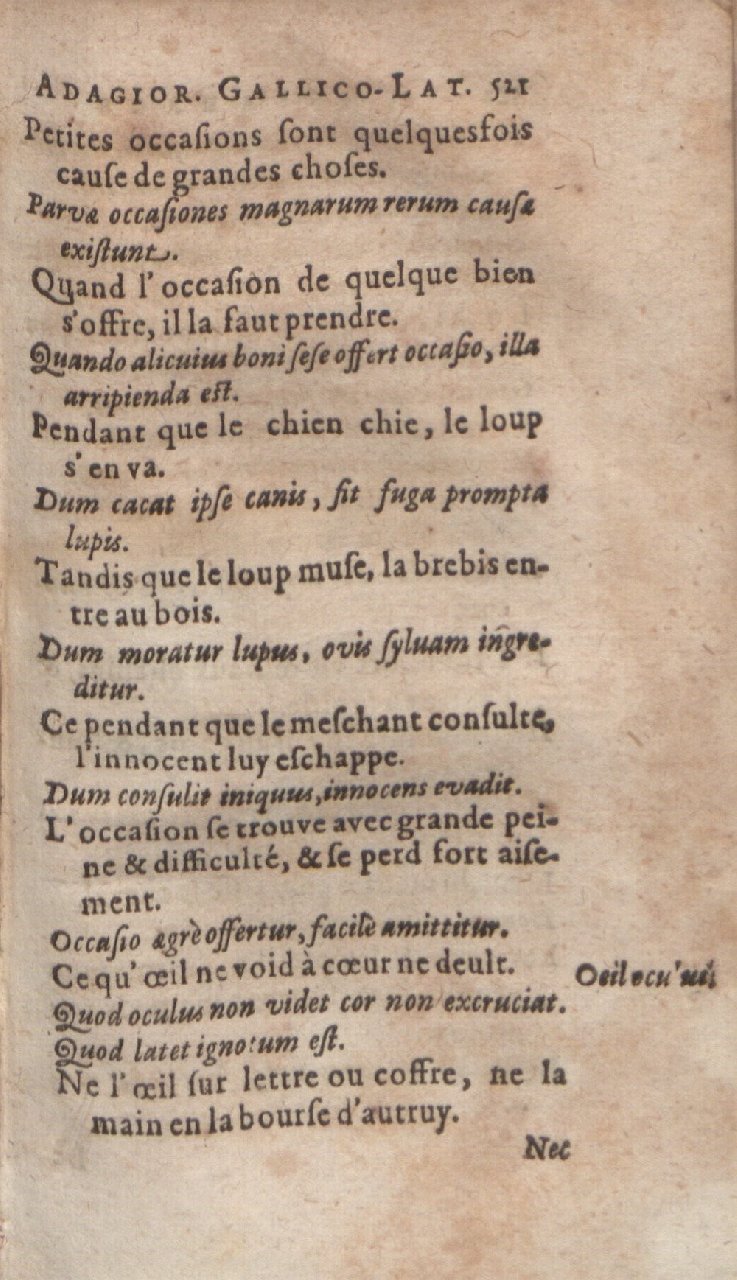 ADAGIOR. GALLICO-LAT. 521
Petites occaſions ſont quelquesfois
cauſe de grandes choſes.
Parvæ occaſiones magnarum rerum cauſæ
exiſtunt.
Quand l'occaſion de quelque bien
s'offre, il la faut prendre.
Quando alicuius boni ſeſe offert occaſio, illa
arripienda eſt.
Pendant que le chien chie, le loup
s'en va.
Dum cacat ipſe canis, fit fuga prompta
lupis.
Tandis que le loup muſe, la brebis en-
tre au bois.
Dum moratur lupus, ovis ſyluam ingre-
ditur.
Ce pendant que le meſchant conſulte,
l'innocent luy eſchappe.
Dum conſulit iniquus, innocens evadit.
L'occaſion ſe trouve avec grande pei-
ne & difficulté, & ſe perd fort aiſe-
ment.
Occaſio ægrè offertur, facilè amittitur.
Ce qu'œil ne void à cœur ne deult.
Oeil ocu'us
Quod oculus non videt cor non excruciat.
Quod latet ignotum eſt.
Ne l'œil ſur lettre ou coffre, ne la
main en la bourſe d'autruy.
Nec